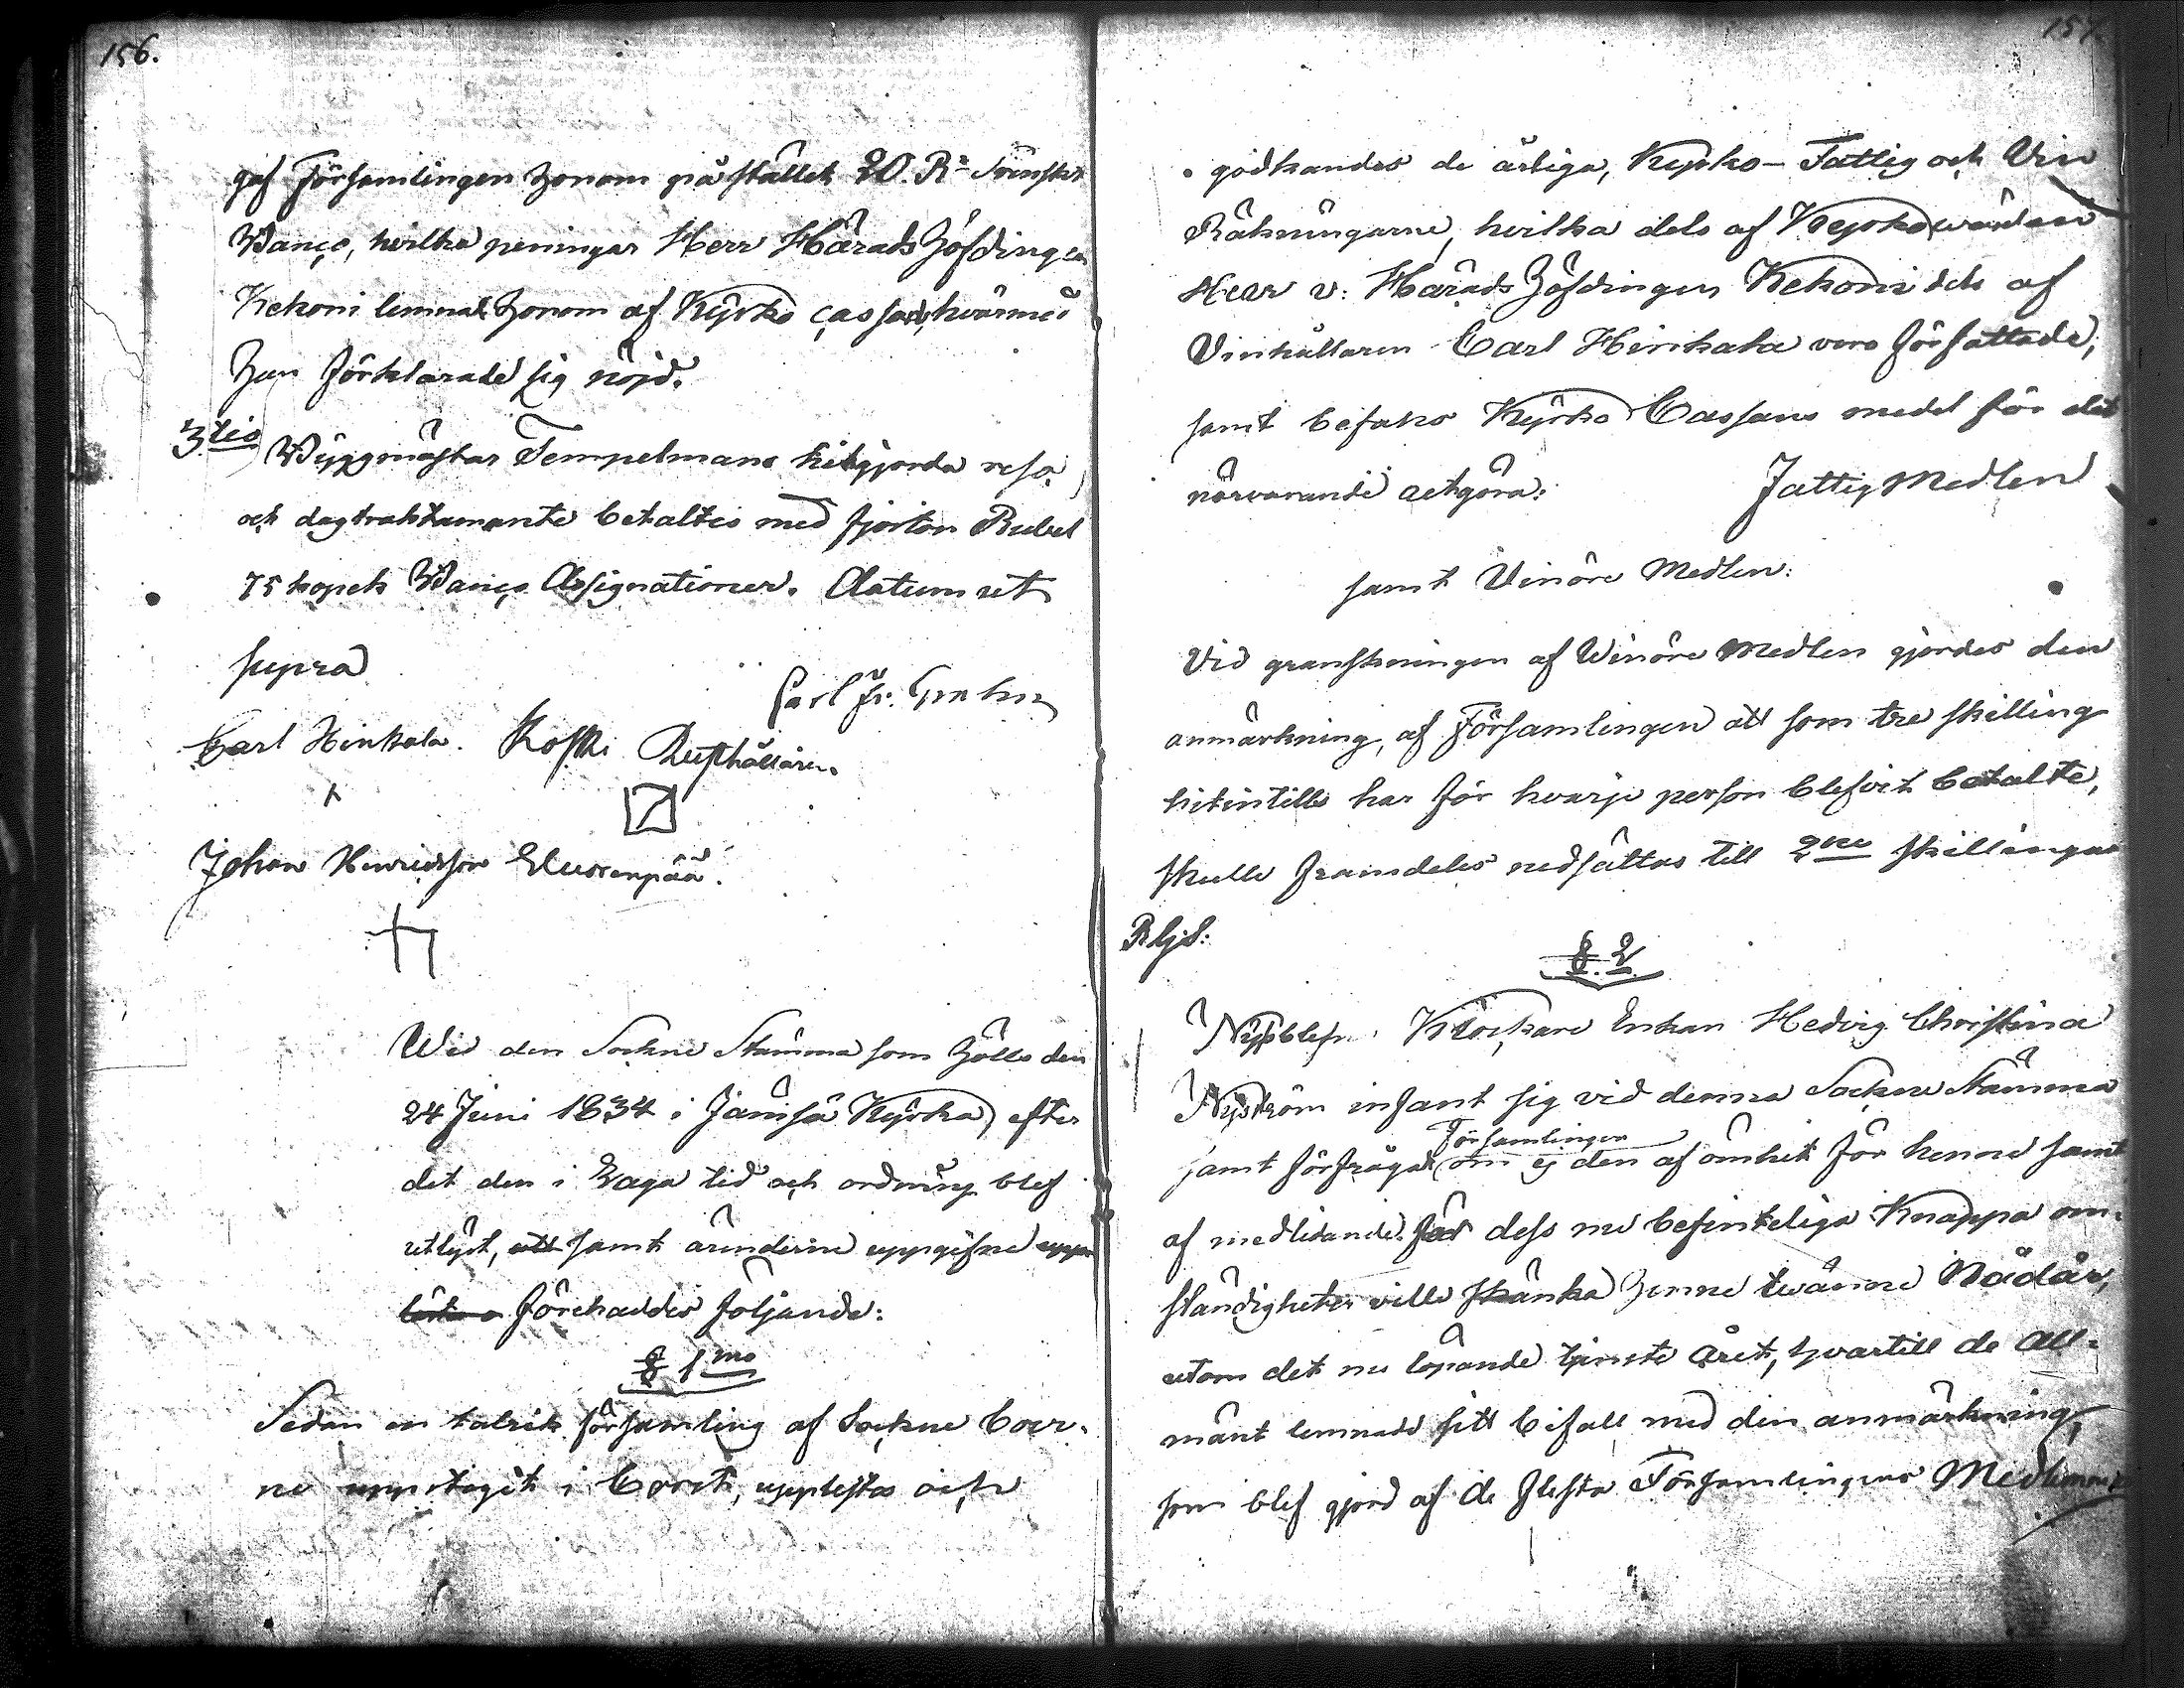 156.
gaf Församlingen honom på stället 20. R: Svenskt
Banço, hvilka peningar Herr HäradsHöfdingen
Kekoni lemnat honom af Kyrko çassan, hvarmed
han förklarade sig nöjd.
3tio Byggmästar Tempelmans hitgjorda resa
och dagtraktamente betaltes med fjorton Rubel
75 kopek Banço Assignationer. Datum ut
supra
Carl Fr: Grahn
Carl Hinkala. Koski Rusthållaren.
Johan Henricsson Eluorenpää.
Wid den Sockne Stämma som hölls den
24 Juni 1834 i Jämsä Kyrka, efter
det den i Laga tid och ordning blef
utlyst, att samt ärenderne uppgifne uppen
förehaddes följande:
§ 1mo
Sedan en talrik församling af Sockne Boer-
ne upstigit i Coret, upplästes och
157.
godkändes de årliga, Kyrko- Fattig och Vin
Räkningarne, hvilka dels af Kyrkowärden
Herr v: HäradsHöfdingen Kekoni dels af
Vinkällaren Carl Hinkala voro författade,
samt befans Kyrko Cassans medel för det
närvarande utgöra: Fattig Medlen
samt Vinöre Medlen:
Vid granskningen af Vinöre Medlen gjordes den
anmärkning, af Församlingen att som tre skilling
hitintills har för hvarje person blefvit betalte,
skulle framdeles nedsättas till 2ne skillingar
Rgs:
§. 2.
Klockare Enkan Hedvig Christina
Nyström infant sig vid denna Sockne Stämma
Församlingen
samt förfrågat om ej den af ömhet för henne samt
af medlidande för dess nu befinteliga Knappa om-
ständigheter ville skänka henne twänne Nådår,
utom det nu löpande tjenste året, hvartill de all-
mänt lemnade sitt bifall med den anmärkning,
som blef gjord af de flesta Församlingens Medlemmar